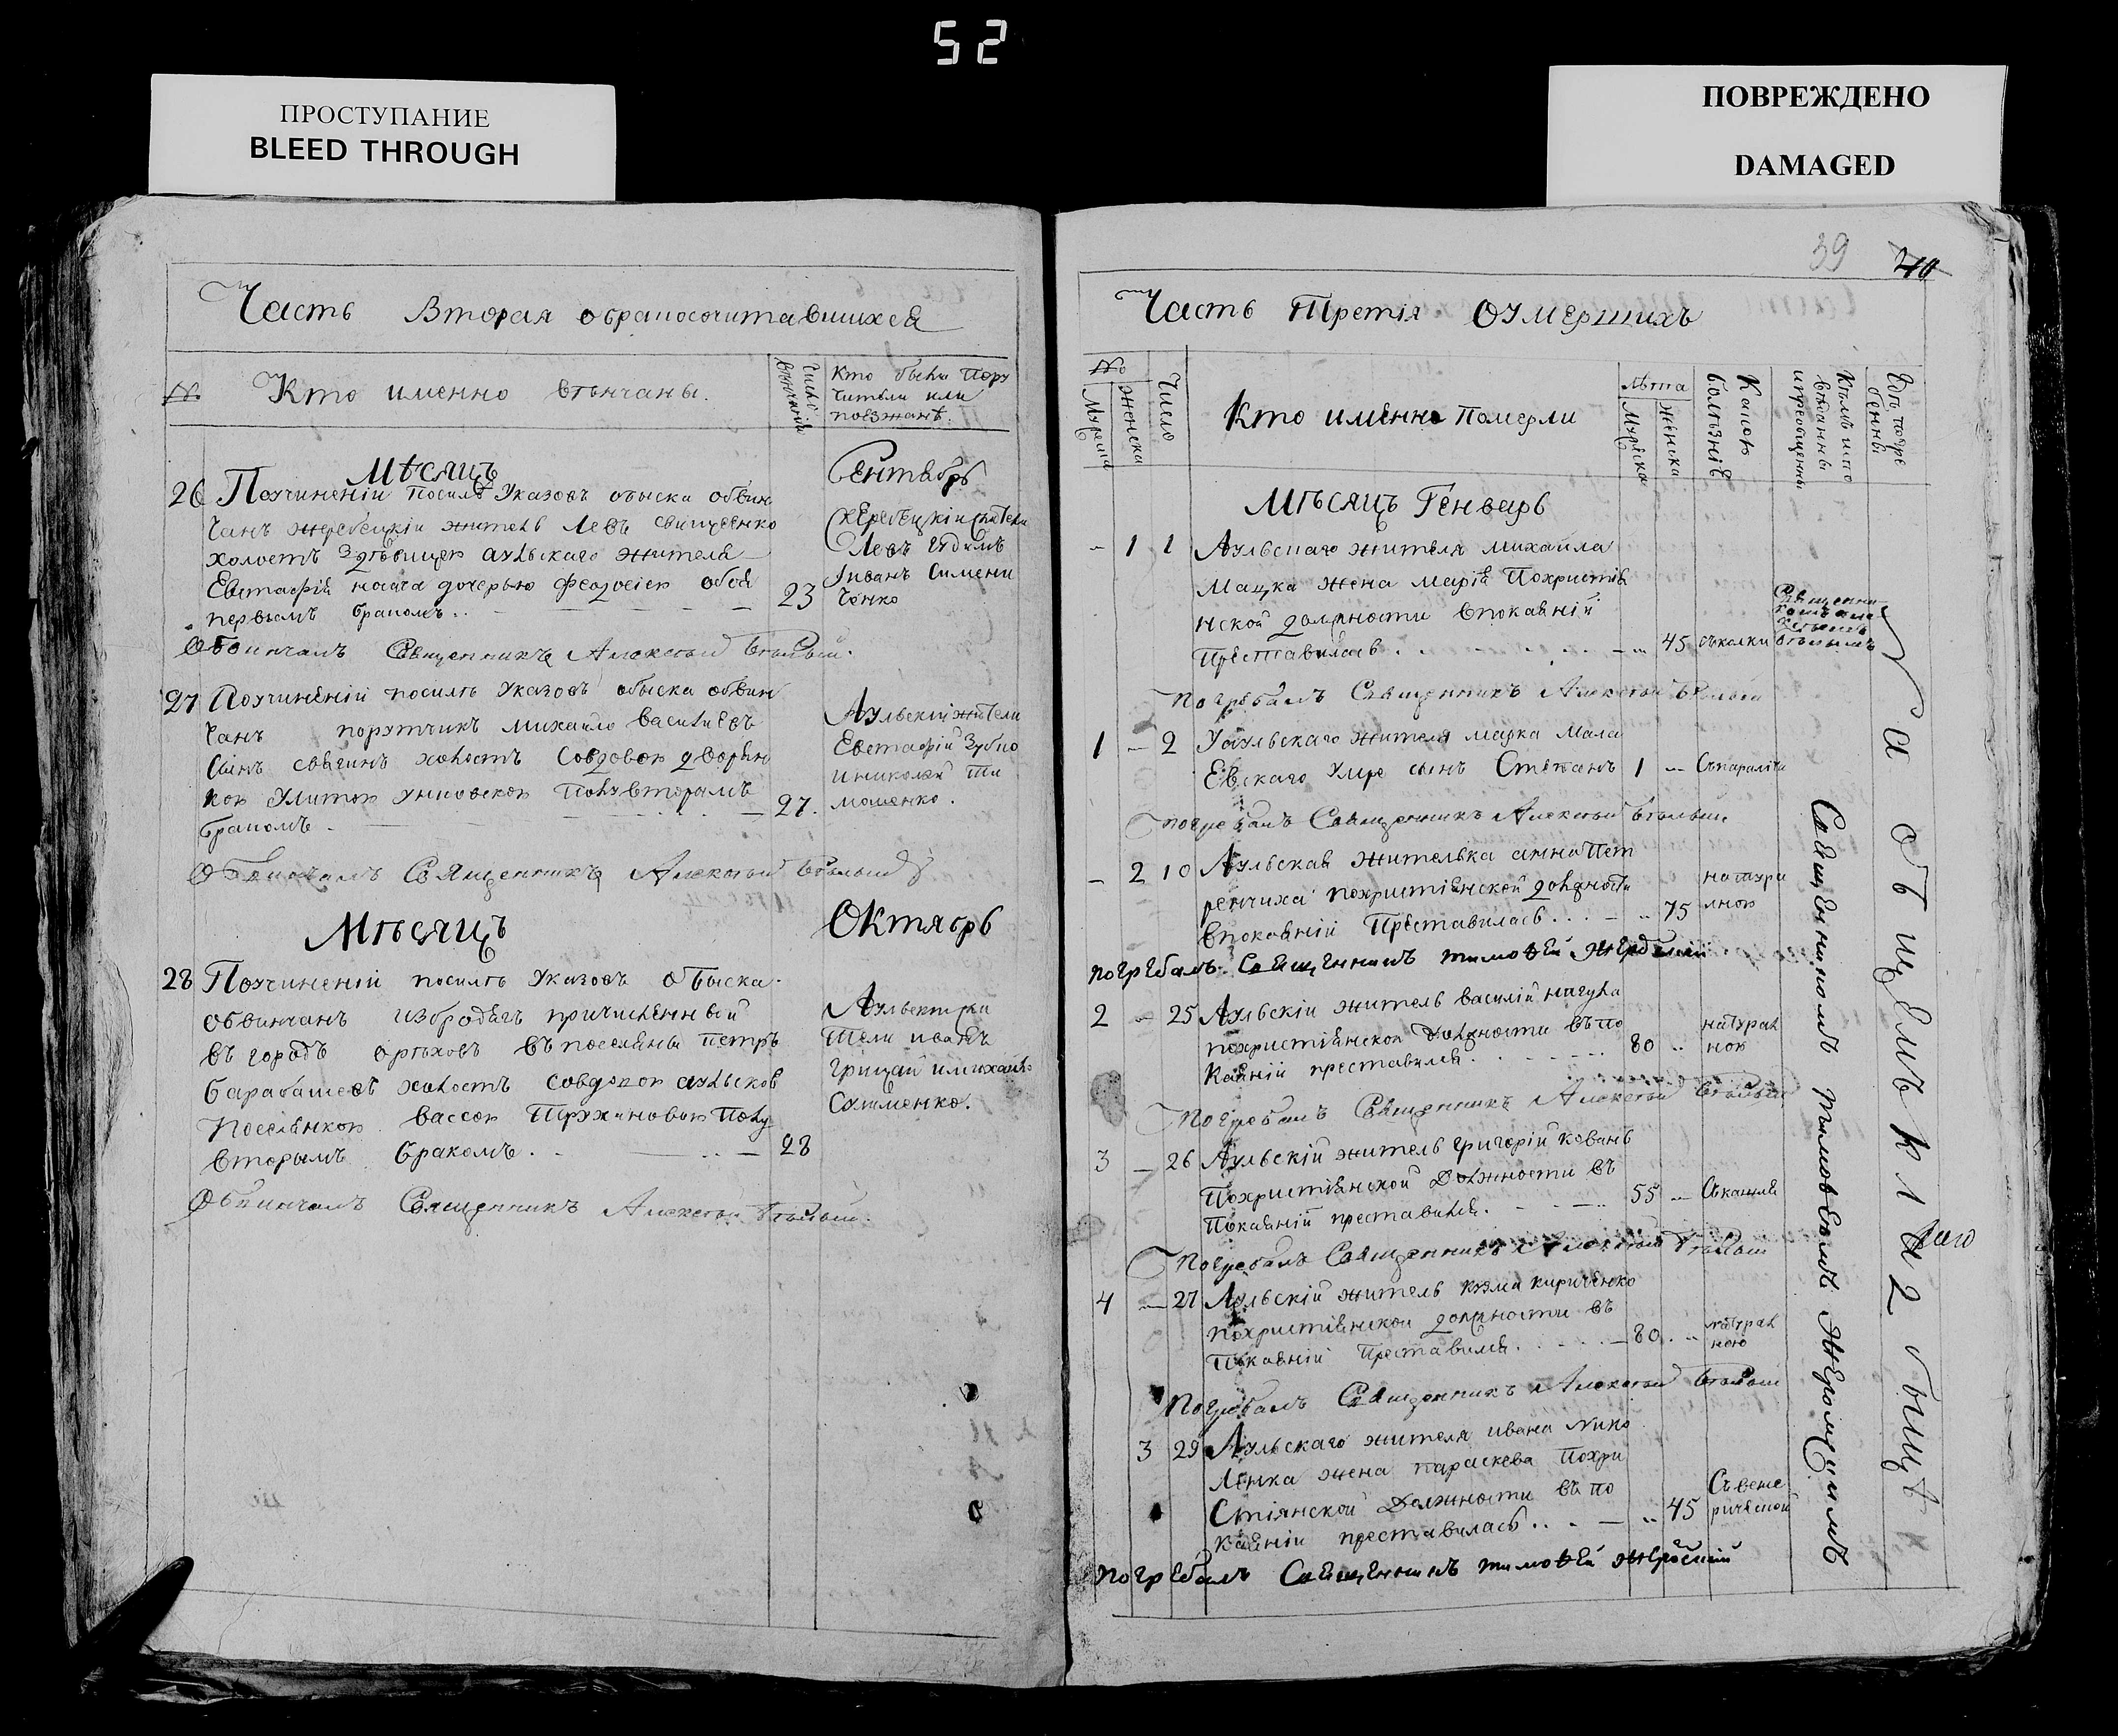 52
ПРОСТУПАНИЕ
BLEED THROUGH
ПОВРЕЖДЕНО
DAMAGED
Часть Вторая обракосочитавшихся
№ Кто именно вѣнчаны.
Число вѣнчанія
Кто были пору
чители или
поезжанѣ.
Мѣсяцъ Сентябрь
26 Поучиненіи посилѣ Указовъ обыска обвин
чанъ жеребецкій житель Левъ
холостъ здѣвицею аульскаго жителя
Евстафія дочерью Феодосією обой
первымъ бракомъ. 23
Жеребецкіи жители
Левъ
Іванъ Симени
ченко
Обвинчалъ Священникъ Алексѣй Бѣлый.
27 Поучиненіи посилѣ Указовъ обыска обвин
чанъ порутчикъ Михайло Василиевъ
сынъ холостъ совдовою дворян
кою Улитою поĸувторымъ
бракомъ. 27.
Аульскіи жители
Евстафій Зубко
иниколай Ти
мошенко.
Обвинчалъ Священникъ Алексѣй Бѣлый
Мѣсяцъ Октябрь
28 Поучиненіи посилѣ Указовъ обыска
обвинчанъ избродягъ причисленный
въ городъ орѣховъ въпоселяны петръ
барабашовъ холостъ совдовою аульскою
поселянкою вассою Тружиновою полу
вторымъ бракомъ. 28
Аульски жи
тели иванъ
грицай имихайло
Сахменко.
Обвинчалъ Священникъ Алексѣй Бѣлый.
39 40
Часть Третія Оумершихъ
№
Мужеска
Женска
Число
Кто именно Померли
лѣта
Мужеска
Женска
Какою болѣзнію
Кѣмъ исповѣданны ипреобщенны
Гдѣ погребенны
Мѣсяцъ Генварь
- 1 1 Аульскаго жителя михайла
Мацка жена марія Похристія
нской должности впокаяніи
Преставилась. 45 съколки
Погребалъ Священникъ Алексѣй Бѣлый
1 - 2 Уаульскаго жителя марка Мала
Евскаго Умре сынъ Стѣпанъ 1 - Съпараличи
погребалъ Священникъ Алексѣй Бѣлый
- 2 10 Аульская жителька анна Пет
ренчиха похристіянской должности
впокаяніи Преставилась. 75 натура
лною
погребалъ Священникъ тимофей Жербецкій
2 - 25 Аульскій житель василій нагула
похристіянской Должности въпо
каяніи преставился. 80 натурал
ною
Погребалъ Священникъ Алексѣй Бѣлый
3 - 26 Аульскій житель григорій ковань
Похристіянской Должности въ
Покаяніи преставился. 55 - Съкашля
Погребалъ Священникъ Алексѣй Бѣлый
4 - 27 Аульскій житель кузма кириченко
похристіянской должности въ
Покаяніи Преставился. 80 натурал
ною
Погребалъ Священникъ Алексѣй Бѣлый
3 29 Аульскаго жителя ивана Нико
ленка жена параскева Похри
стіянской Должности въ по
каяніи преставилась. 45 Съвене
рической
погребалъ Священникъ тимофей
Священникомъ тимофеемъ
На общемъ кладбищѣ